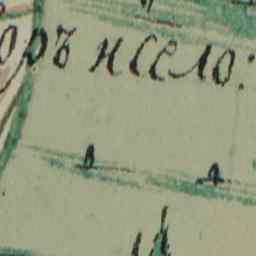 оръ нсело: